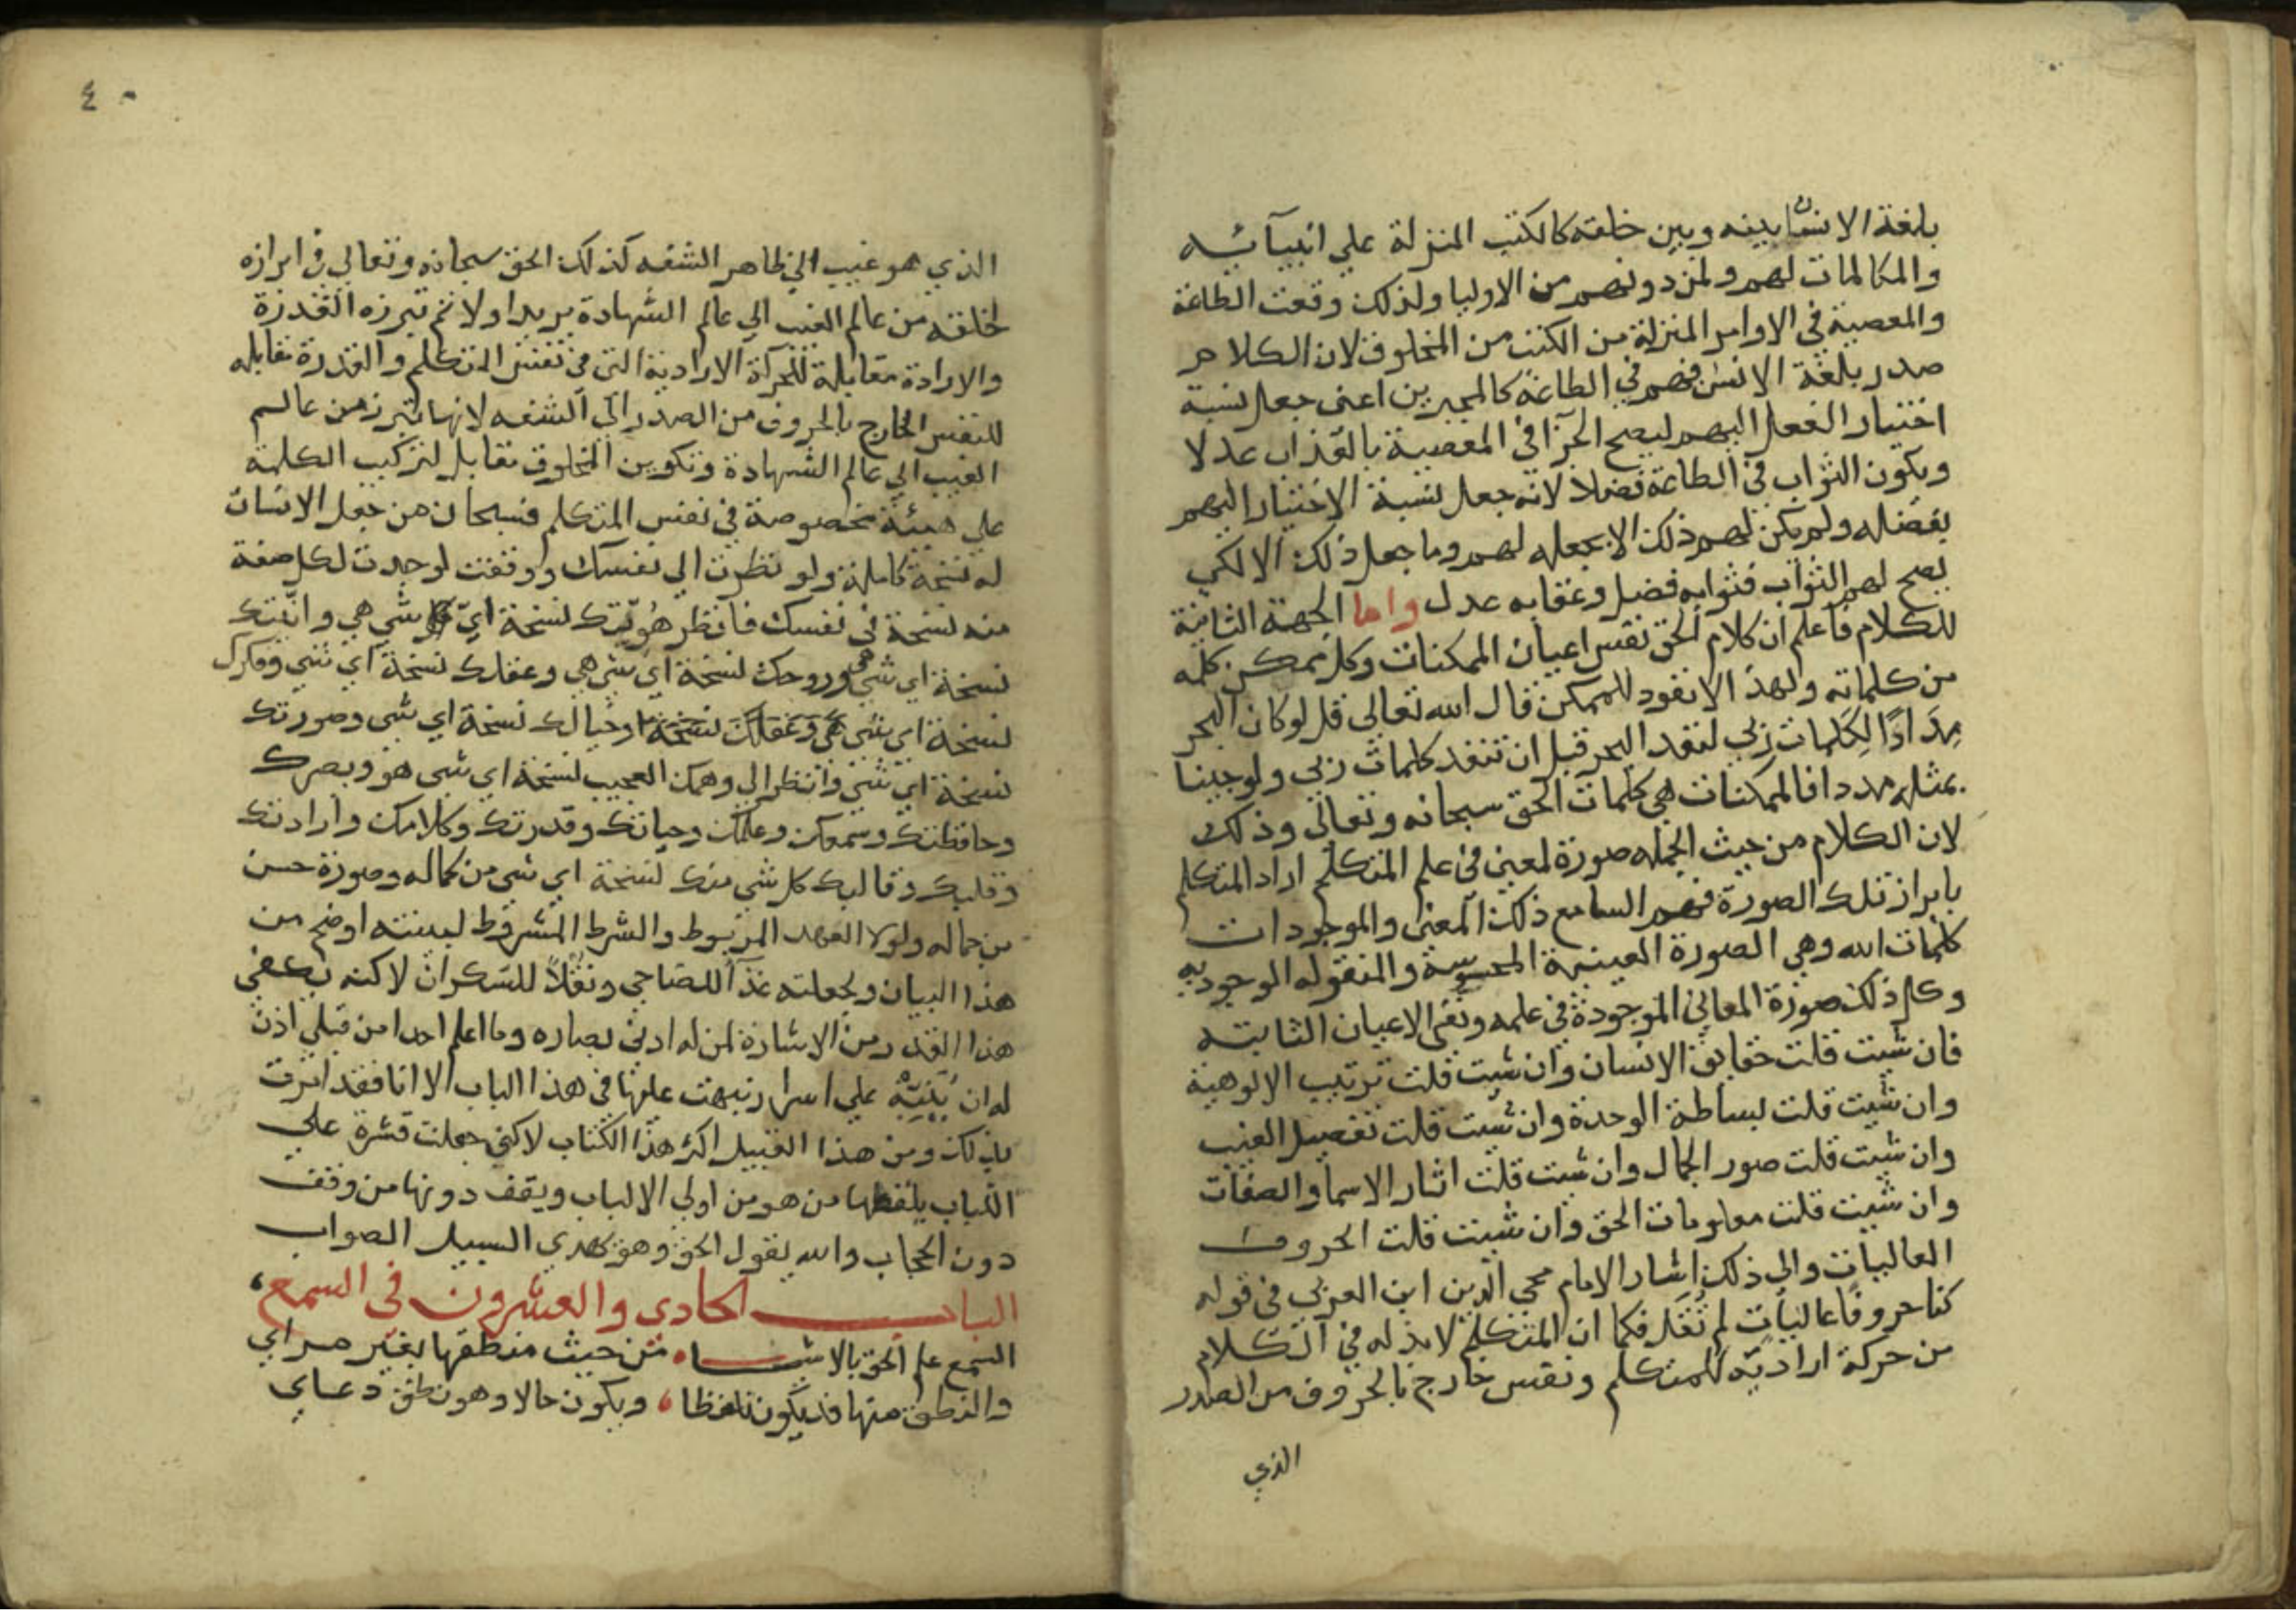 بلغة الانسان بينه وبين خلقه كالكتب المنزلة علي انبيآئه
والمكالمات لهم ولمن دونهم من الاوليا ولذلك وقعت الطاعة
والمعصية في الاوامر المنزلة من الكتب من المخلوق لان الكلام
صدر بلغة الانس فهم في الطاعة كالمجبرين اعني جعل نسبة
اختيار الفعل اليهم ليصح الجزآ في المعصية بالعذاب عدلا
ويكون الثواب في الطاعة فضلا لانه جعل نسبة الاختيار اليهم
بفضله ولم يكن لهم ذلك الا بجعله لهم وما جعل ذلك الا لكي
يصح لهم الثواب فثوابه فضل وعقابه عدل واما الجهة الثانية
للكلام فاعلم ان كلام الحق نفس اعيان الممكنات وكل ممكن كلمه
من كلماته ولهذا لا نفود للممكن قال الله تعالي قل لو كان البحر
مِدَادًا لِكَلِمات ربي لنفد البحر قبل ان تنفد كلمات ربي ولو جينا
بمثله مددا فالممكنات هي كلمات الحق سبحانه وتعالي وذلك
لان الكلام من حيث الجمله صورة لمعني في علم المتكلم اراد المتكلم
بابراز تلك الصورة فهم السامع ذلك المعني والموجودات
كلمات الله وهي الصورة العينية المحسوسة والمنقوله الموجوديه
وكل ذلك صورة المعاني الموجودة في علمه وهي الاعيان الثابته
فان شيت قلت حقايق الانسان وان شيت قلت ترتيب الالوهية
وان شيت قلت بساطة الوحدة وان شيت قلت تفصيل الغيب
وان شيت قلت صور الجمال وان شيت قلت اثار الاسما والصفات
وان شيت قلت معلومات الحق وان شيت قلت الحروف
العاليات والي ذلك اشار الامام محي الدين ابن العربي في قوله
كنا حروفا عاليات لم نُقَل فكما ان المتكلم لا بد له في الكلام
من حركة اراديّه للمتكلم ونفس خارج بالحروف من الصدر
الذي
٤٠
الذي هو غيب الي ظاهر الشفه كذلك الحق سبحانه وتعالي في ابرازه
لخلقه من عالم الغيب الي عالم الشهادة يريد اولا ثم تبرزه القدرة
والارادة مقابلة للحركة الارادية التي في نفس المتكلم والقدرة مقابله
للنفس الخارج بالحروف من الصدر الي الشفه لانها تبرز من عالم
الغيب الي عالم الشهادة وتكوين المخلوق مقابل لتركيب الكلمة
علي هيئة مخصوصة في نفس المتكلم فسبحان من جعل الانسان
له نسخة كاملة ولو نظرت الي نفسك ووقفت لوجدت لكل صفة
منه نسخة في نفسك فانظر هُوِيّتك نسخة ايّ شي هي وانّيتك
نسخة اي شي هي وروحك نسخة اي شي هي وعقلك نسخة اي شي وفكرك
نسخة اي شي هي وخيالك نسخة اي شي وصورتك
نسخة اي شي وانظر الي وهمك العجيب نسخة اي شي هو وبصرك
وحافظتك وسمعك وعلمك وحياتك وقدرتك وكلامك وارادتك
وقلبك وقالبك كل شي منك نسخة اي شي من كماله وصورة حسن
من جماله ولولا العهد المربوط والشرط المشروط لبينته اوضح من
هذا البيان ولجعلته غذآ للصاحي ونقلاً للسكران لاكنه يكفي
هذا القدر من الاشارة لمن له ادني بصاره وما اعلم احدا من قبلي اذن
له ان يُنَبِّهُ علي اسرار نبهت عليها في هذا الباب الا انا فقد امرت
بذلك ومن هذا القبيل اكثر هذا الكتاب لاكني جعلت قشرة علي
اللباب يلفظها من هو من اولي الالباب ويقف دونها من وقف
دون الحجاب والله يقول الحق وهو يهدي السبيل الصواب
الباب الحادي والعشرون في السمع
السمع علم الحق بالاشياء من حيث منطقها بغير مراي
والنطق منها قد يكون تلفظا ويكون حالا وهو نطق دعاي